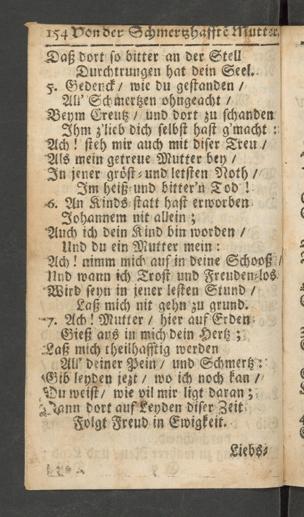 154 Von der Schmertzhaffte Mutter.
Daß dort so bitter an der Stell
Durchtrungen hat dein Seel.
5. Gedenck / wie du gestanden /
All' Schmertzen ohngeacht /
Beym Creutz / und dort zu schanden
Ihm z'lieb dich selbst hast g'macht :
Ach ! steh mir auch mit diser Treu /
Als mein getreue Mutter bey /
In jener gröst- und letsten Noth /
Im heiß- und bitter'n Tod !
6. An Kinds statt hast erworben
Johannem nit allein ;
Auch ich dein Kind bin worden /
Und du ein Mutter mein :
Ach ! nimm mich auf in deine Schooß /
Und wann ich Trost und Freuden-los
Wird seyn in jener lesten Stund /
Laß mich nit gehn zu grund.
7. Ach ! Mutter / hier auf Erden
Gieß aus in mich dein Hertz ;
Laß mich theilhafftig werden
All' deiner Pein / und Schmertz :
Gib leyden jezt / wo ich noch kan /
Du weist / wie vil mir ligt daran ;
Dann dort auf Leyden diser Zeit
Folgt Freud in Ewigkeit.
Liebs-